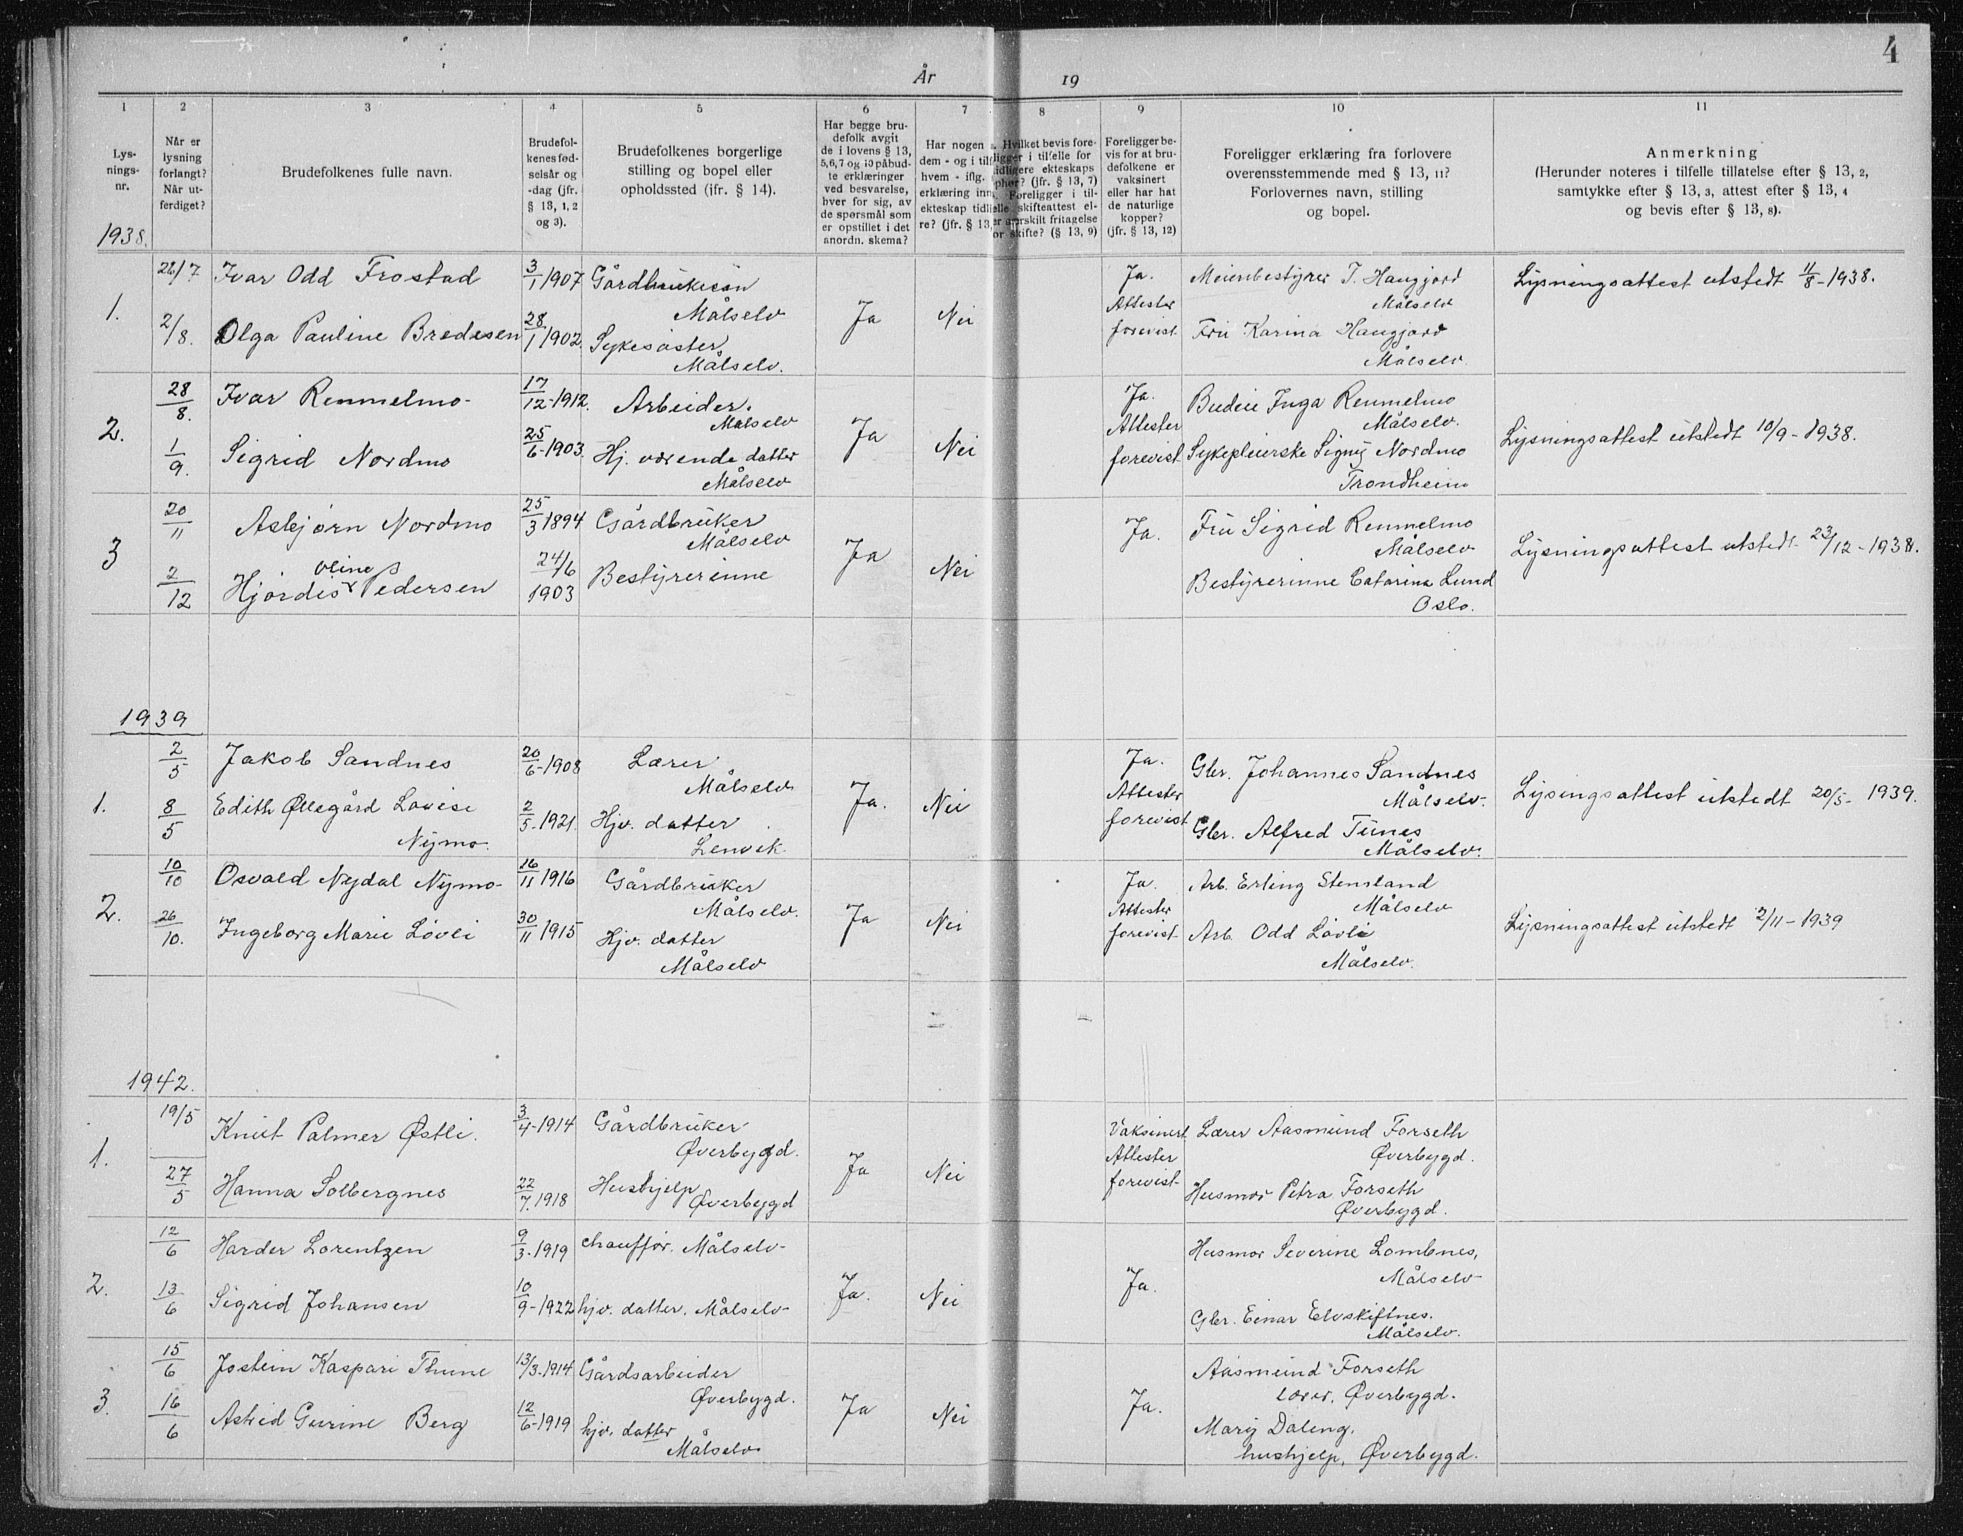 4
År 19
1 2 3 4 5 6 7 8 9 10 11
Lys-
nings-
nr.
Når er
lysning
forlangt?
Når ut-
ferdiget?
Brudefolkenes fulle navn.
Brudefol-
kenes fød-
selsår og
-dag (jfr.
§ 13, 1, 2
og 3).
Brudefolkenes borgerlige
stilling og bopel eller
opholdssted (jfr. § 14).
Har begge bru-
defolk avgit
de i lovens § 13,
5,6,7 og 10 påbud-
te erklæringer
ved besvarelse,
hver for sig, av
de spørsmål som
er opstillet i det
anordn. skema?
Har nogen a
dem - og i tilf
hvem - iflg.
erklæring inn
ekteskap tidl
re? (jfr. § 13,
Hvilket bevis fore-
ligger i tilfelle for
tidligere ekteskaps
ophør? (jfr. § 13, 7)
Foreligger i til-
felle skifteattest el-
ler særskilt fritagelse
for skifte? (§ 13, 9)
Foreligger be-
vis for at bru-
defolkene er
vaksinert
eller har hat
de naturlige
kopper?
(jfr. § 13, 12)
Foreligger erklæring fra forlovere
overensstemmende med § 13, 11?
Forlovernes navn, stilling
og bopel.
Anmerkning
(Herunder noteres i tilfelle tillatelse efter § 13, 2,
samtykke efter § 13, 3, attest efter § 13, 4
og bevis efter § 13, 8).
1938.
1.
26/7 Ivar Odd Frostad 3/1 1907 Gårdbrukersøn
Målselv
2/8. Olga Pauline Bredesen 28/1 1902. Sykesøster
Målselv.
Ja Nei
Ja.
Attester
forevist
Meieribestyrer T. Haugjord
Målselv
Fru Karina Haugjord
Målselv.
Lysningsattest utstedt 11/8-1938.
2.
28/8. Ivar Renmelmo 17/12-1912. Arbeider.
Målselv
1/9. Sigrid Nordmo 25/6-1903. Hj. værende datter
Målselv
Ja Nei
Ja.
Attester
forevist
Budeie Inga Renmelmo
Målselv.
Sykepleierske Signy Nordmo
Trondheim
Lysningsattest utstedt 10/9-1938.
3
20/11 Asbjørn Nordmo 25/3 1894 Gårdbruker
Målselv
Oline
2/12 Hjørdis Pedersen 24/6 1903 Bestyrerinne
Ja Nei
Ja.
Fru Sigrid Renmelmo
Målselv
Bestyrerinne Catarina Lund
Oslo.
Lysningsattest utstedt 23/12-1938.
1939
1.
2/5 Jakob Sandnes 20/6-1908 Lærer
Målselv
8/5 Edith Øllegård Lovise
Nymo. 2/5-1921. Hjv. datter
Lenvik
Ja. Nei
Ja.
Attester
forevist
Gbr. Johannes Sandnes
Målselv.
Gbr. Alfred Tunes
Målselv.
Lysingsattest utstedt 20/5-1939.
2.
10/10 Osvald Nydal Nymo 16/11 1916 Gårdbruker
Målselv.
26/10. Ingeborg Marie Løvli 30/11 1915 Hjv. datter
Målselv
Ja Nei
Ja.
Attester
forevist
Arb. Erling Stensland
Målselv
Arb. Odd Løvli
Målselv.
Lysningsattest utstedt 2/11-1939
1942.
1.
19/5 Knut Palmer Østli. 3/4-1914 Gårdbruker
Øverbygd.
27/5 Hanna Solbergnes 22/7.1918 Hushjelp
Øverbygd
Ja Nei
Vaksinert
Attester
forevist
Lærer Aasmund Forseth
Øverbygd.
Husmor Petra Forseth
Øverbygd.
2.
12/6 Harder Lorentzen 9/3-1919 chauffør. Målselv
13/6 Sigrid Johansen 10/9-1922 hjv. datter. Målselv
Ja. Nei
Ja.
Husmor Severine Lombnes,
Målselv
Gbr. Einar Elvskiftnes.
Målselv.
3.
15/6 Jostein Kaspari Thune 13/3-1914 Gårdsarbeider
Øverbygd.
16/6 Astrid Gurine Berg 12/6-1919 hjv. datter
Målselv
Ja Nei
Ja.
Aasmund Forseth
lærer, Øverbygd.
Mary Daling.
hushjelp, Øverbygd.